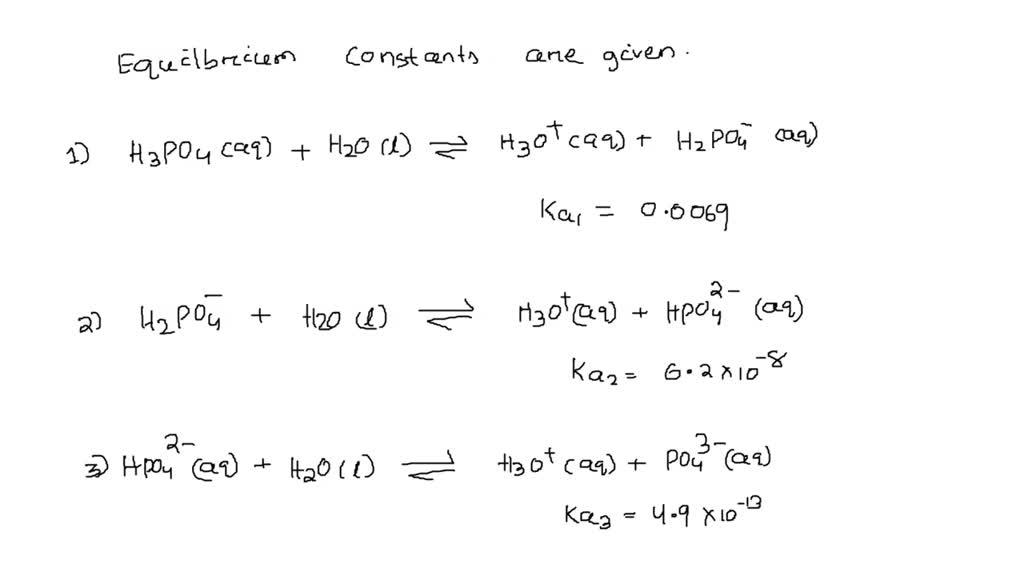 Equilbrium Constants are given.
1) H₃PO₄ (aq) + H₂O (l) ⇌ H₃O⁺ (aq) + H₂PO₄⁻ (aq)
Ka₁ = 0.0069
2) H₂PO₄⁻ + H₂O (l) ⇌ H₃O⁺ (aq) + HPO₄²⁻ (aq)
Ka₂ = 6.2 × 10⁻⁸
3) HPO₄²⁻ (aq) + H₂O (l) ⇌ H₃O⁺ (aq) + PO₄³⁻ (aq)
Ka₃ = 4.9 × 10⁻¹³